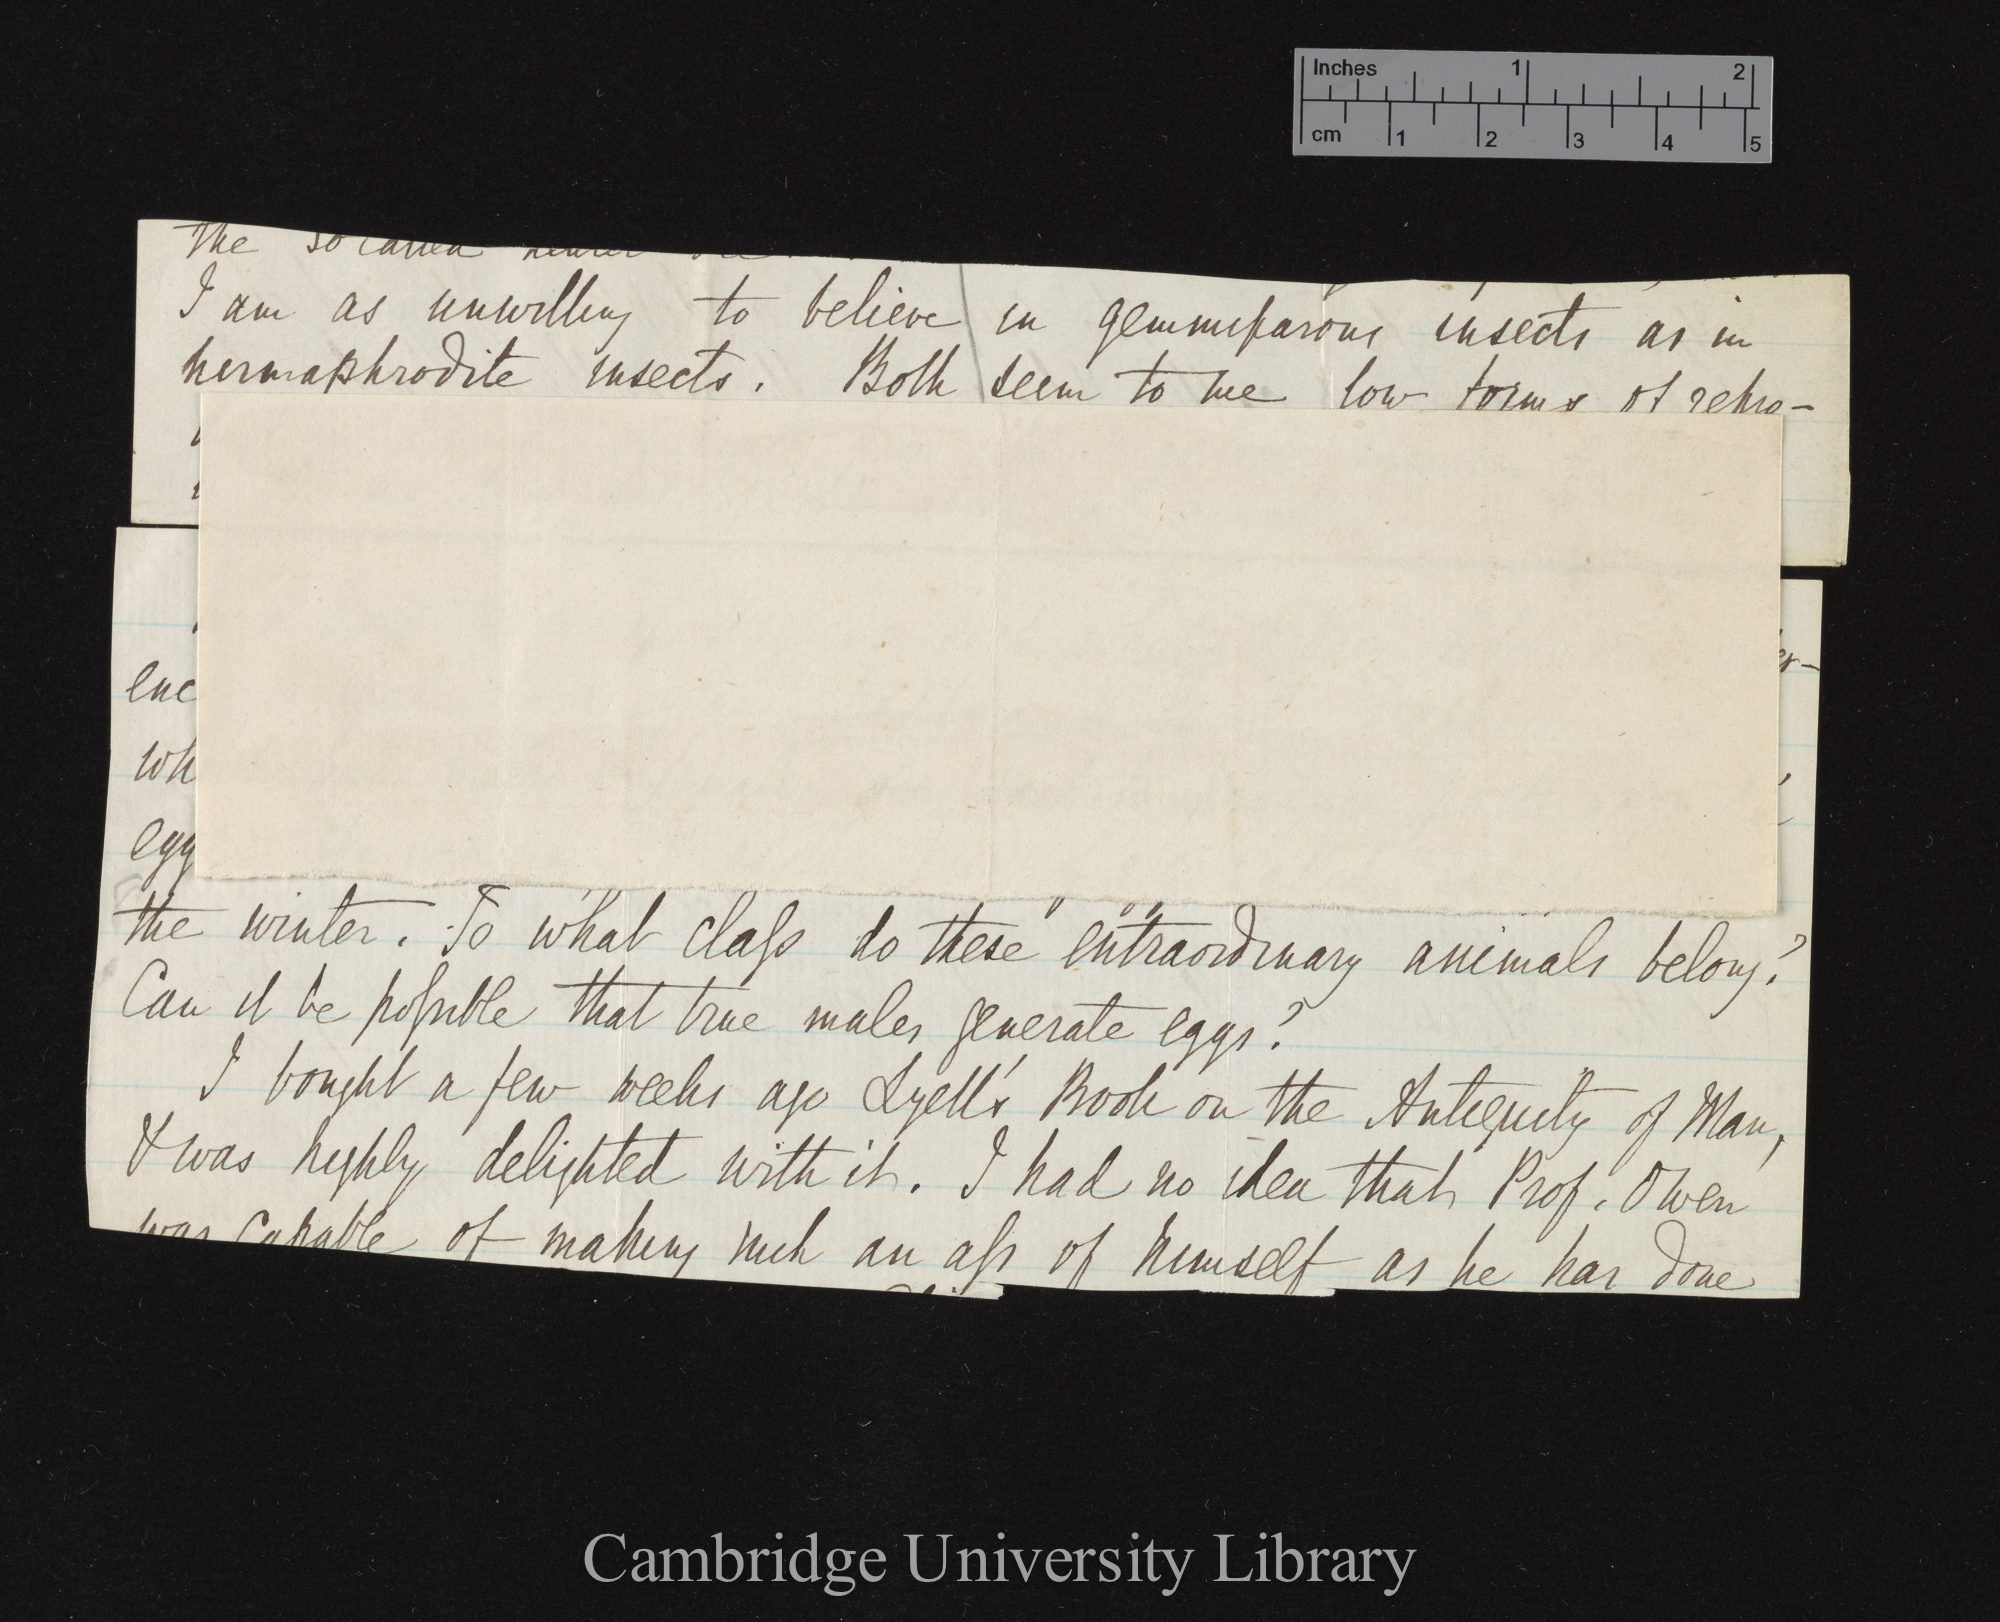 Inches 1 2
cm 1 2 3 4 5
the so called
I am as unwilling to believe in gemmiparous insects as in
hermaphrodite insects. Both seem to me low forms of repro-
er-
enc
wh
egg
the winter. To what class do these extraordinary animals belong?
Can it be possible that true males generate eggs?
I bought a few weeks ago Lyell's Book on the Antiquity of Man,
& was highly delighted with it. I had no idea that Prof. Owen
was capable of making such an ass of himself as he has done
Cambridge University Library